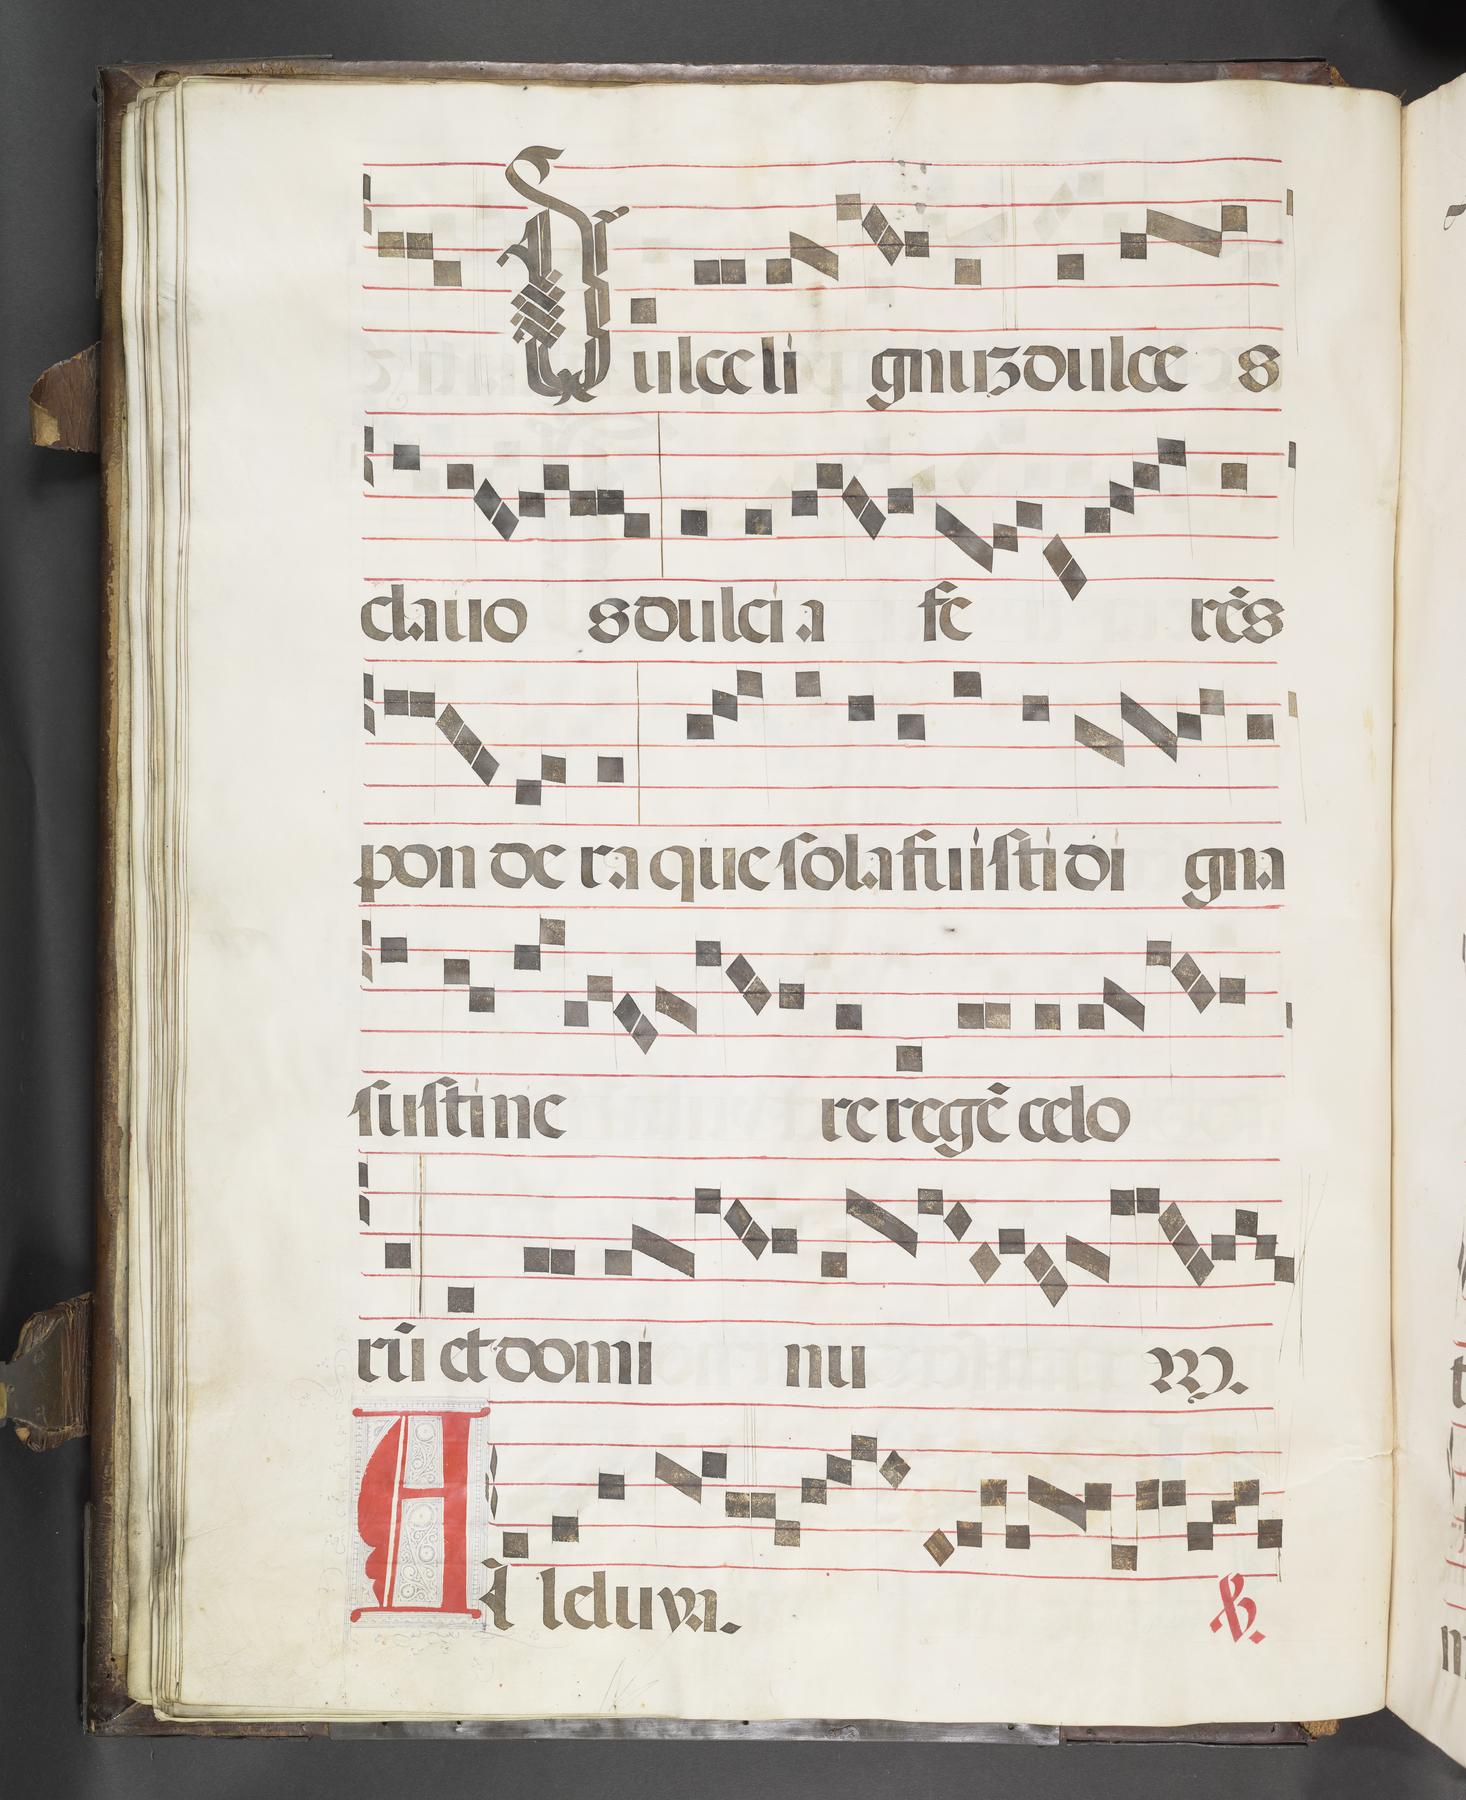 Dulce li gnuz dulce s
clauo s dulci a fe rẽs
pon de ra que sola fuisti di gna
sustine re regẽ celo
rũ et domi nu m.
A l leluya. ℣.